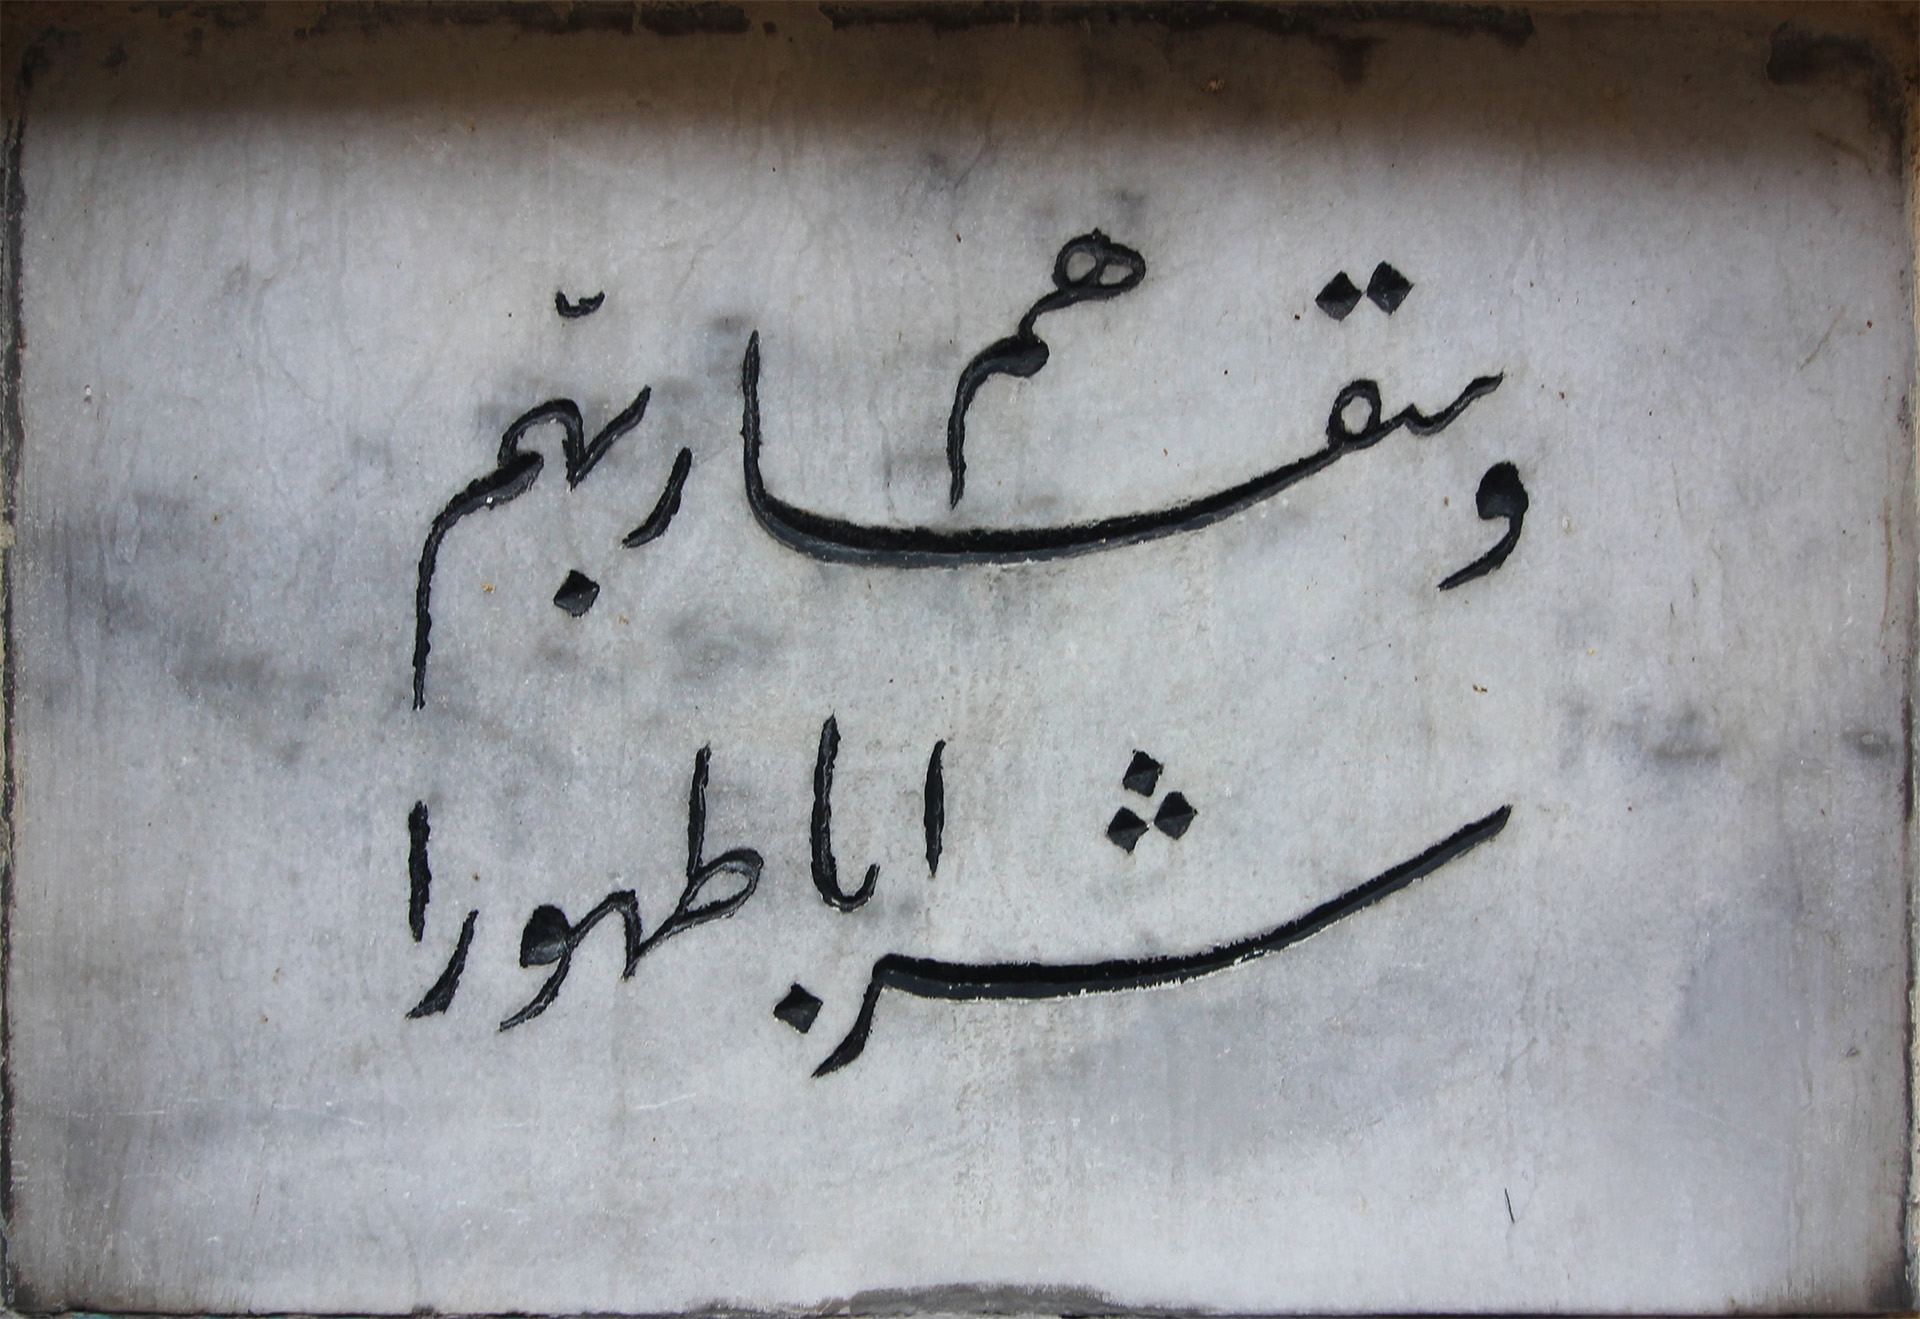 وسقاهم ربهّم
شرابا طهورا